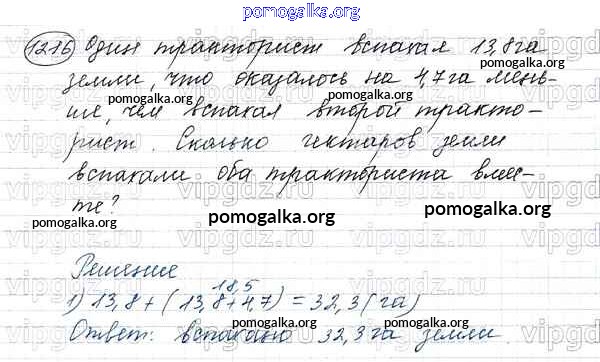 pomogalka.org
1216 Один тракторист вспахал 13,8 га
земли, что оказалось на 4,7 га мень-
pomogalka.org pomogalka.org
ше, чем вспахал второй тракто-
рист. Сколько гектаров земли
вспахали оба тракториста вмес-
pomogalka.org pomogalka.org
те?
pomogalka.org
Решение
18,5
1) 13,8 + (13,8+4,7) = 32,3 (га)
pomogalka.org pomogalka.org
Ответ: вспахано 32,3 га земли.